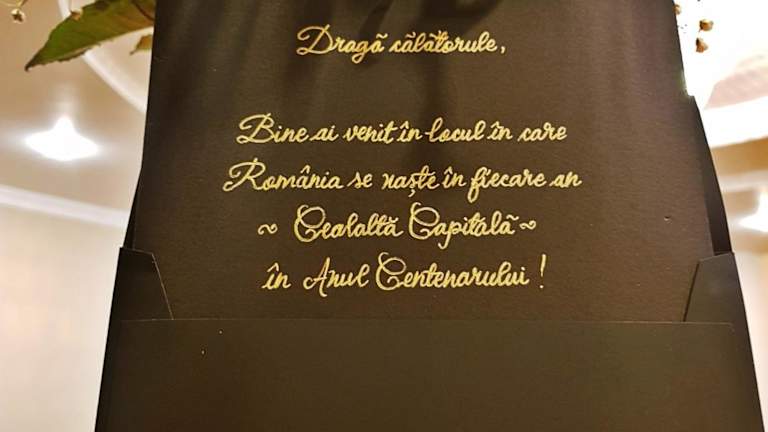 Dragă călătorule,
Bine ai venit în locul în care
România se naște în fiecare an
~ Cealaltă Capitală ~
în Anul Centenarului !